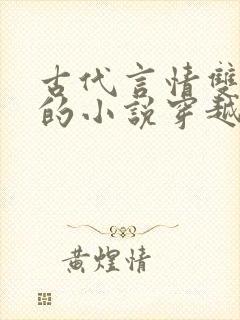 古代言情雙
的小說穿越
黃煌情